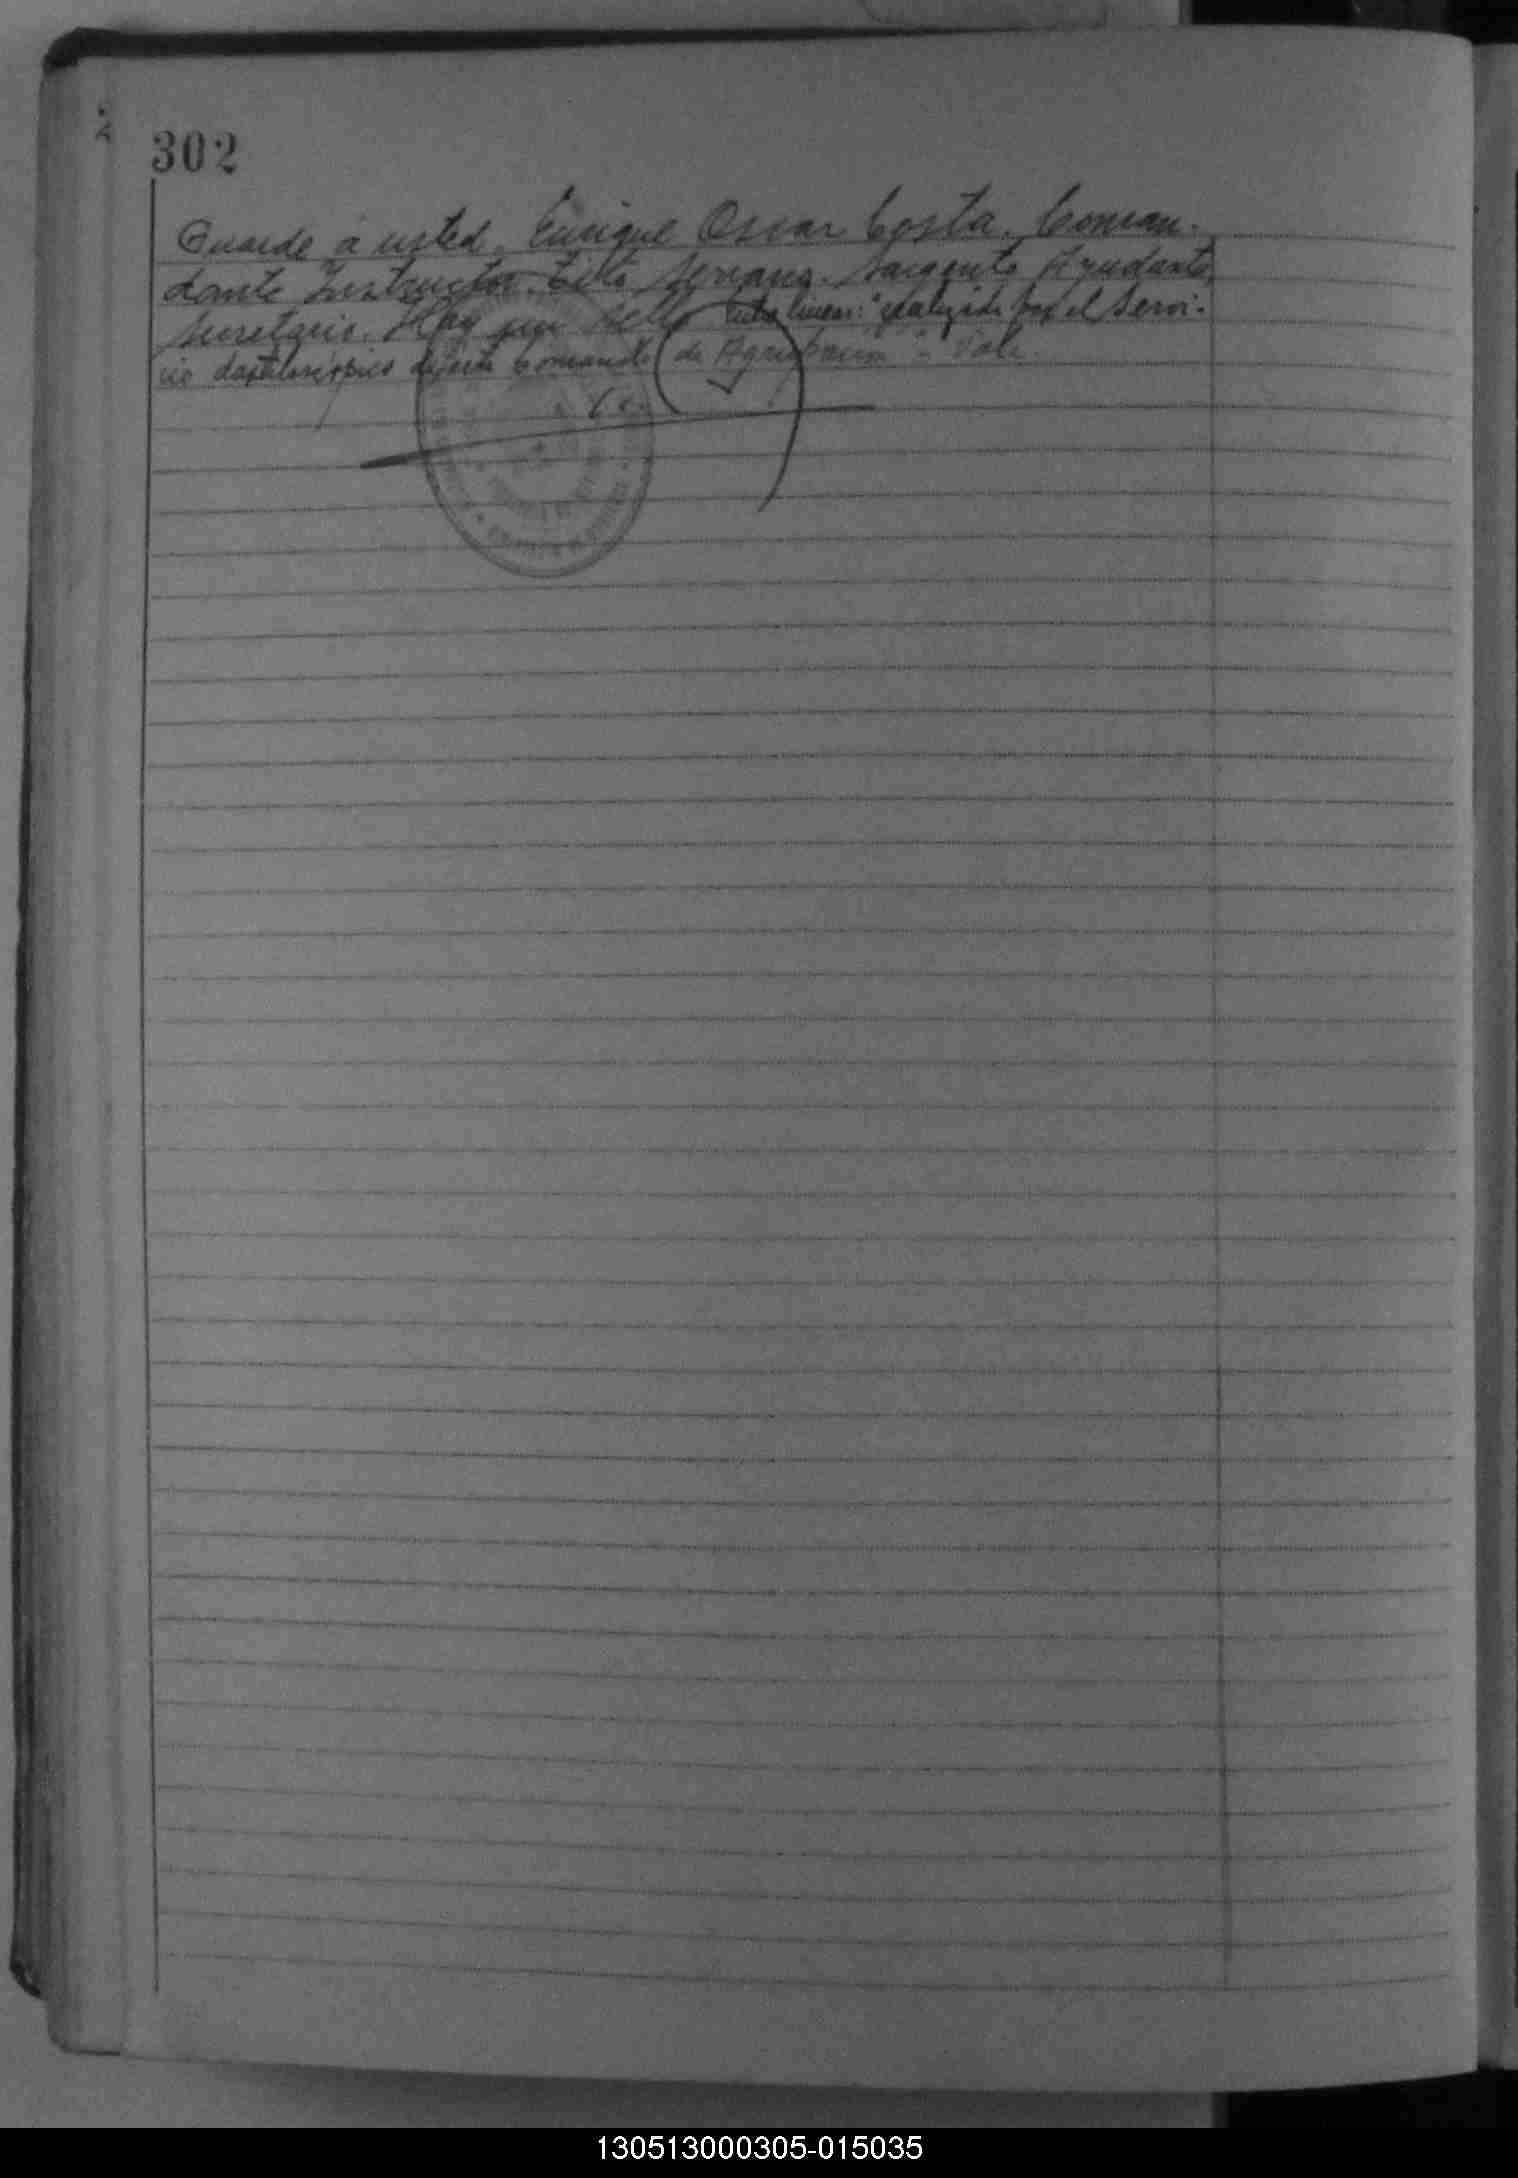 302
Guarde a usted. Enrique Oscar Costa. Coman-
dante Instructor. Tito Serrano. Sargento Ayudante,
Secretario. Hay un sello. Entre lineas: "realizada por el Servi-
cio dactiloscópico de esta Comando de Agrupación" - Vale.
130513000305-015035